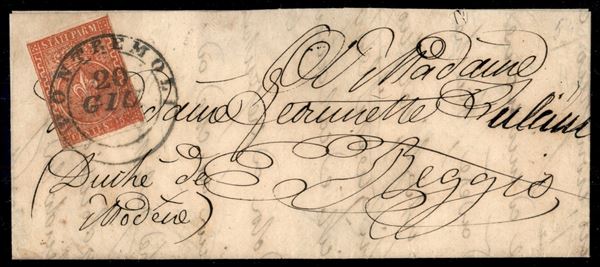 STATI PARM
PONTREMOLI
20
GIU
A Madame
Madame Jeannette
Reggio
(Duché de
Modène)